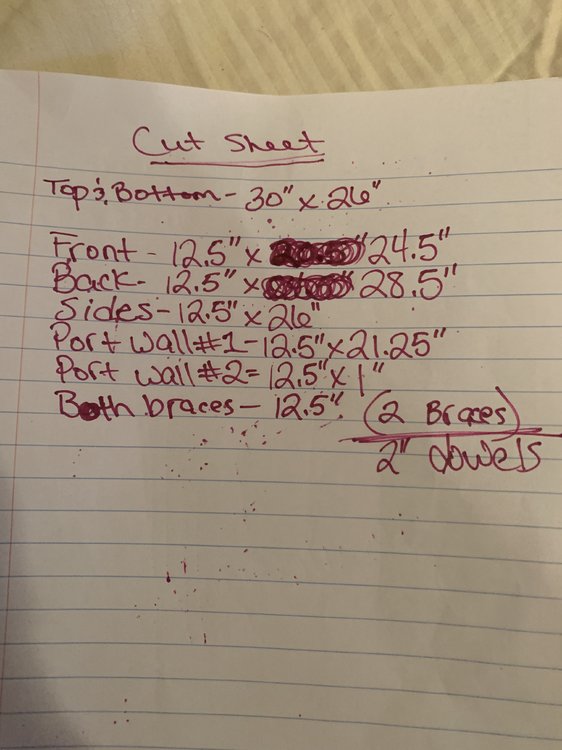 Cut Sheet
Top & Bottom - 30" x 26"
Front - 12.5" x 24.5"
Back - 12.5" x 28.5"
Sides - 12.5" x 26"
Port Wall #1 - 12.5" x 21.25"
Port Wall #2 = 12.5" x 1"
Both braces - 12.5" (2 Braces)
2" dowels